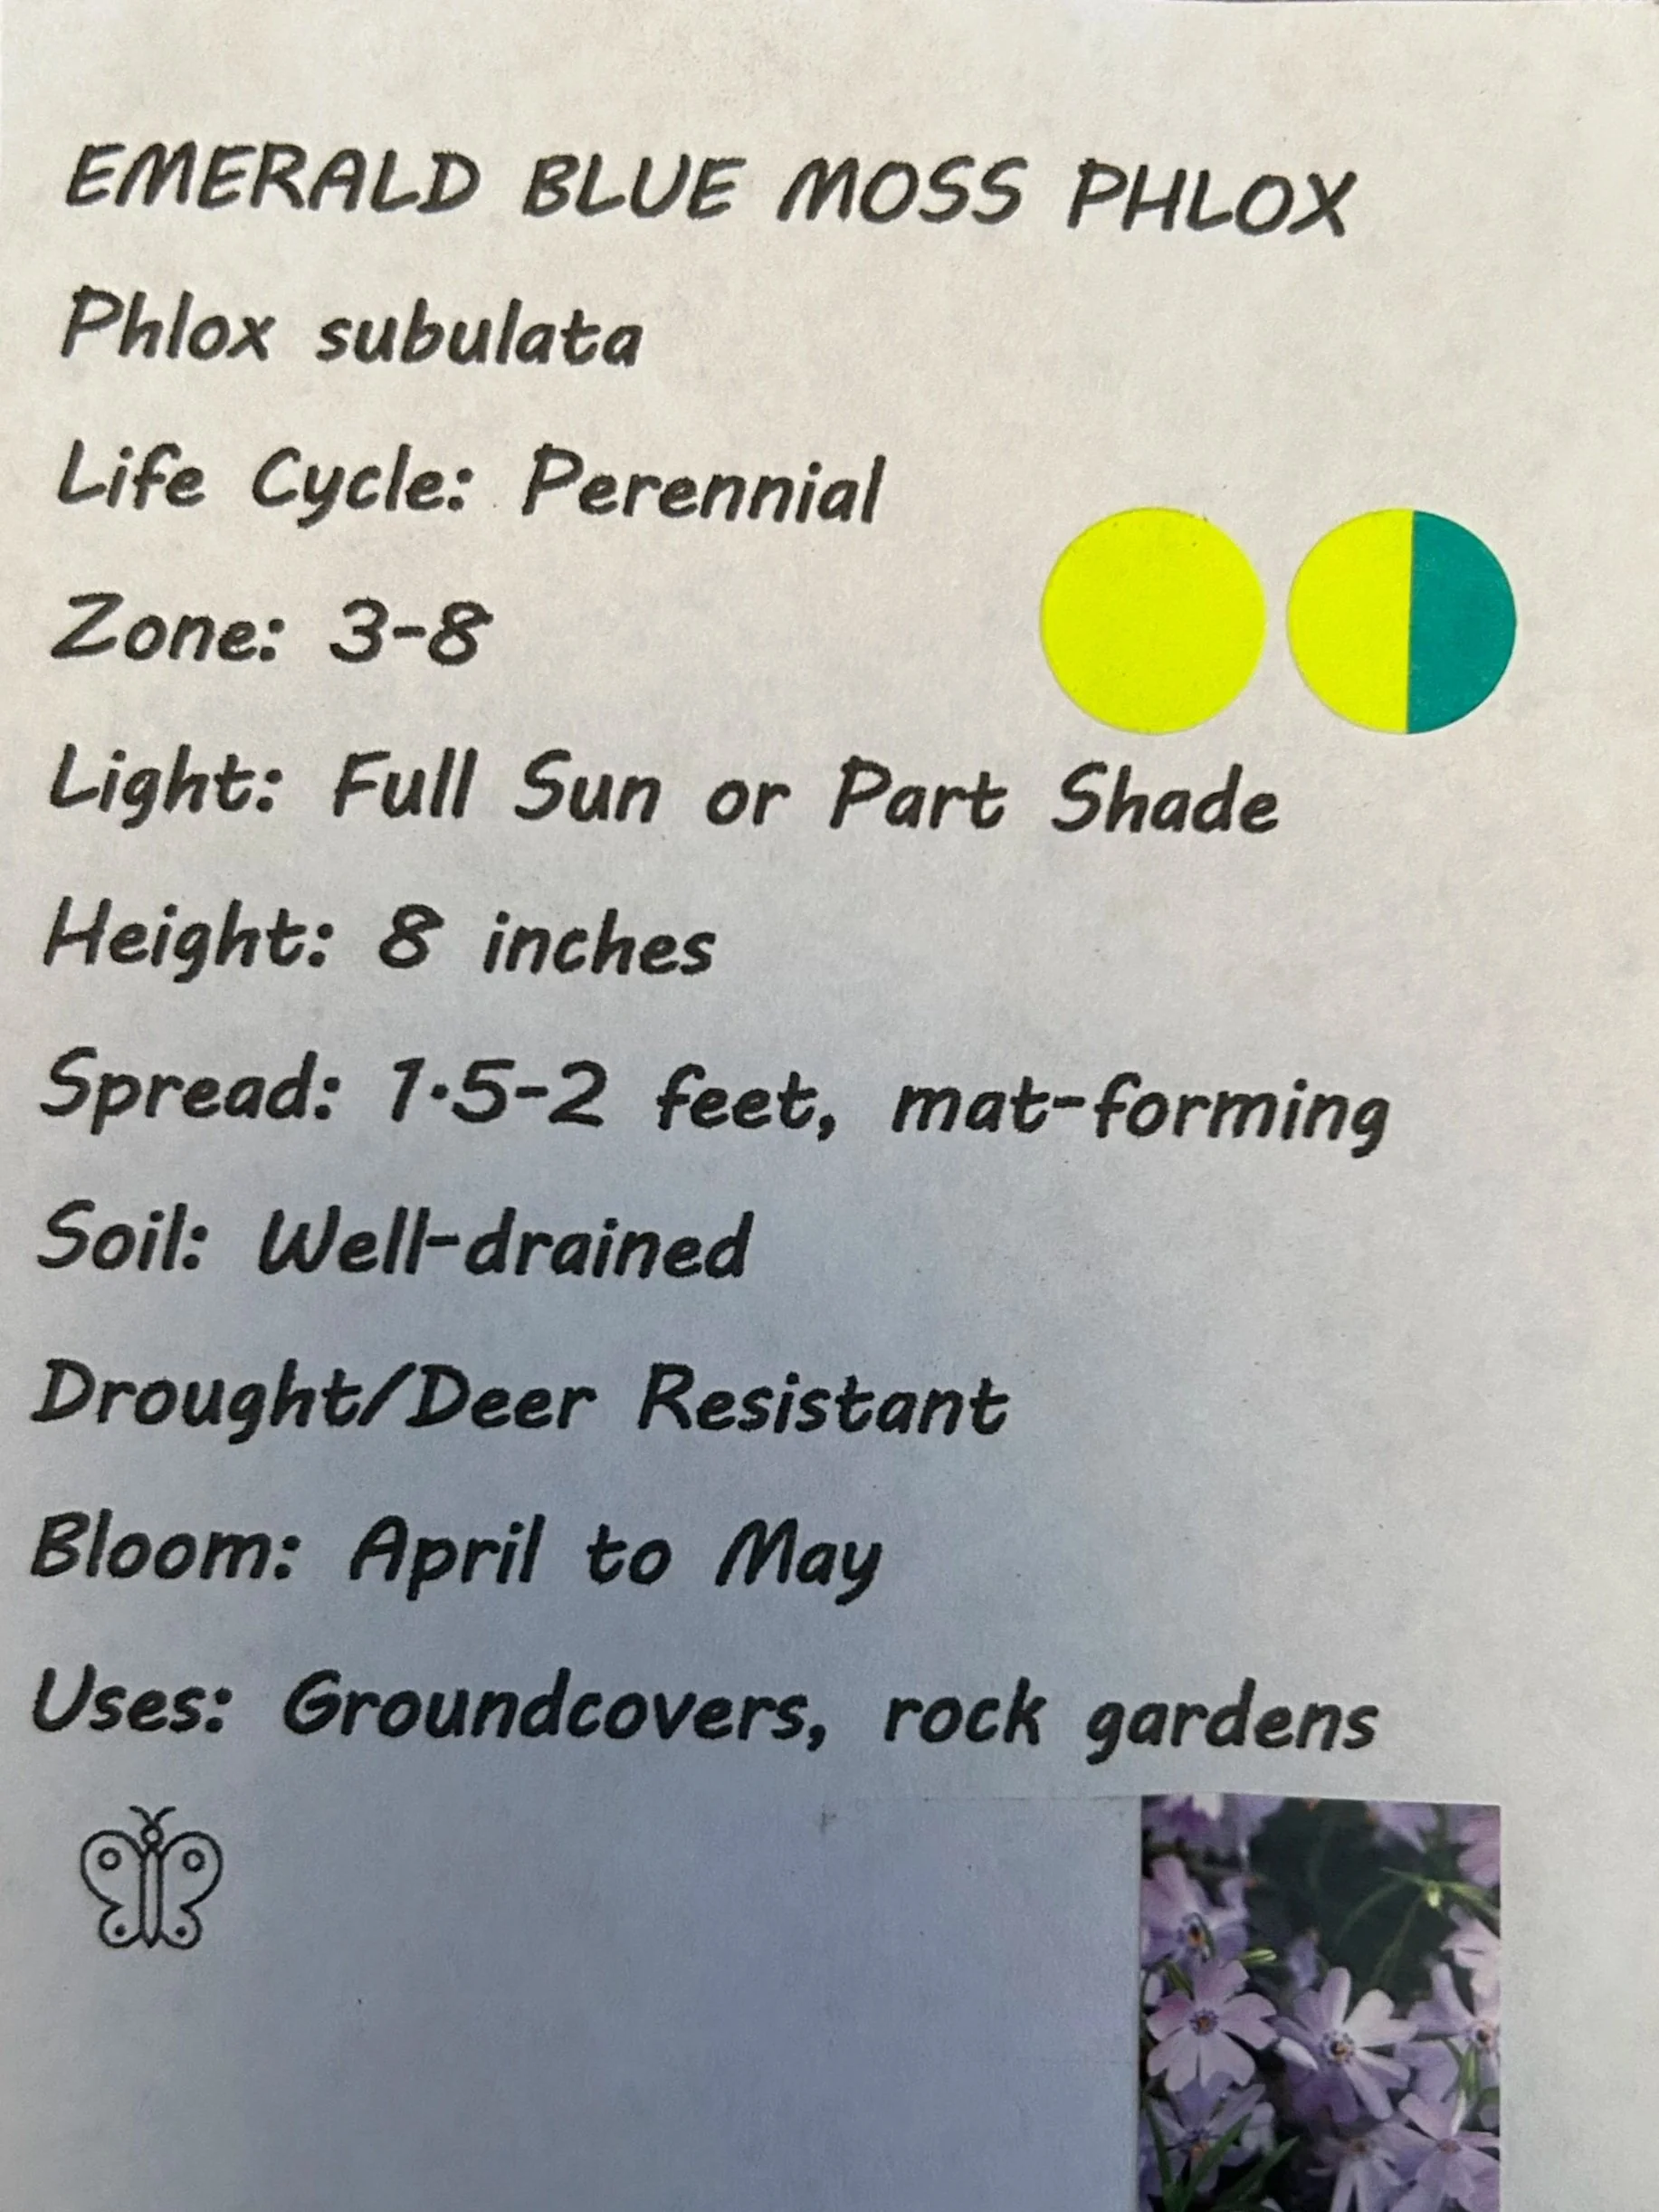 EMERALD BLUE MOSS PHLOX
Phlox subulata
Life Cycle: Perennial
Zone: 3-8
Light: Full Sun or Part Shade
Height: 8 inches
Spread: 1.5-2 feet, mat-forming
Soil: Well-drained
Drought/Deer Resistant
Bloom: April to May
Uses: Groundcovers, rock gardens